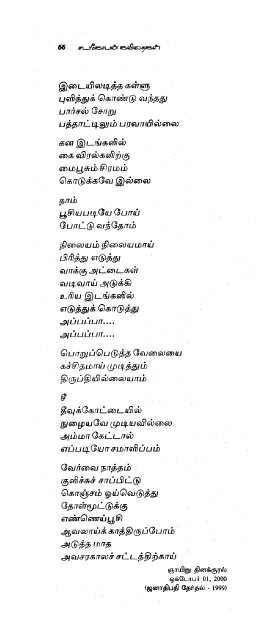 66 சடாகோபன் கவிதைகள்
இடையிலடித்த கள்ளு
புளித்துக் கொண்டு வந்தது
பார்சல் சோறு
பத்தாட்டிலும் பரவாயில்லை
கன இடங்களில்
கை விரல்களிற்கு
மைபூசும் சிரமம்
கொடுக்கவே இல்லை
தாம்
பூசியபடியே போய்
போட்டு வந்தோம்
நிலையம் நிலையமாய்
பிரித்து எடுத்து
வாக்கு அட்டைகள்
வடிவாய் அடுக்கி
உரிய இடங்களில்
எடுத்துக் கொடுத்து
அப்பப்பா....
அப்பப்பா....
பொறுப்பெடுத்த வேலையை
கச்சிதமாய் முடித்தும்
திருப்தியில்லையாம்
சீ
தீவுக்கோட்டையில்
நுழையவே முடியவில்லை
அம்மா கேட்டால்
எப்படியோ சமாளிப்பம்
வேர்வை நாத்தம்
குளிச்சுச் சாப்பிட்டு
கொஞ்சம் ஓய்வெடுத்து
தோள்மூட்டுக்கு
எண்ணெய்பூசி
ஆவலாய்க் காத்திருப்போம்
அடுத்த மாத
அவசரகாலச் சட்டத்திற்காய்
ஞாயிறு தினக்குரல்
ஒக்டோபர் 01, 2000
(ஜனாதிபதி தேர்தல் - 1999)